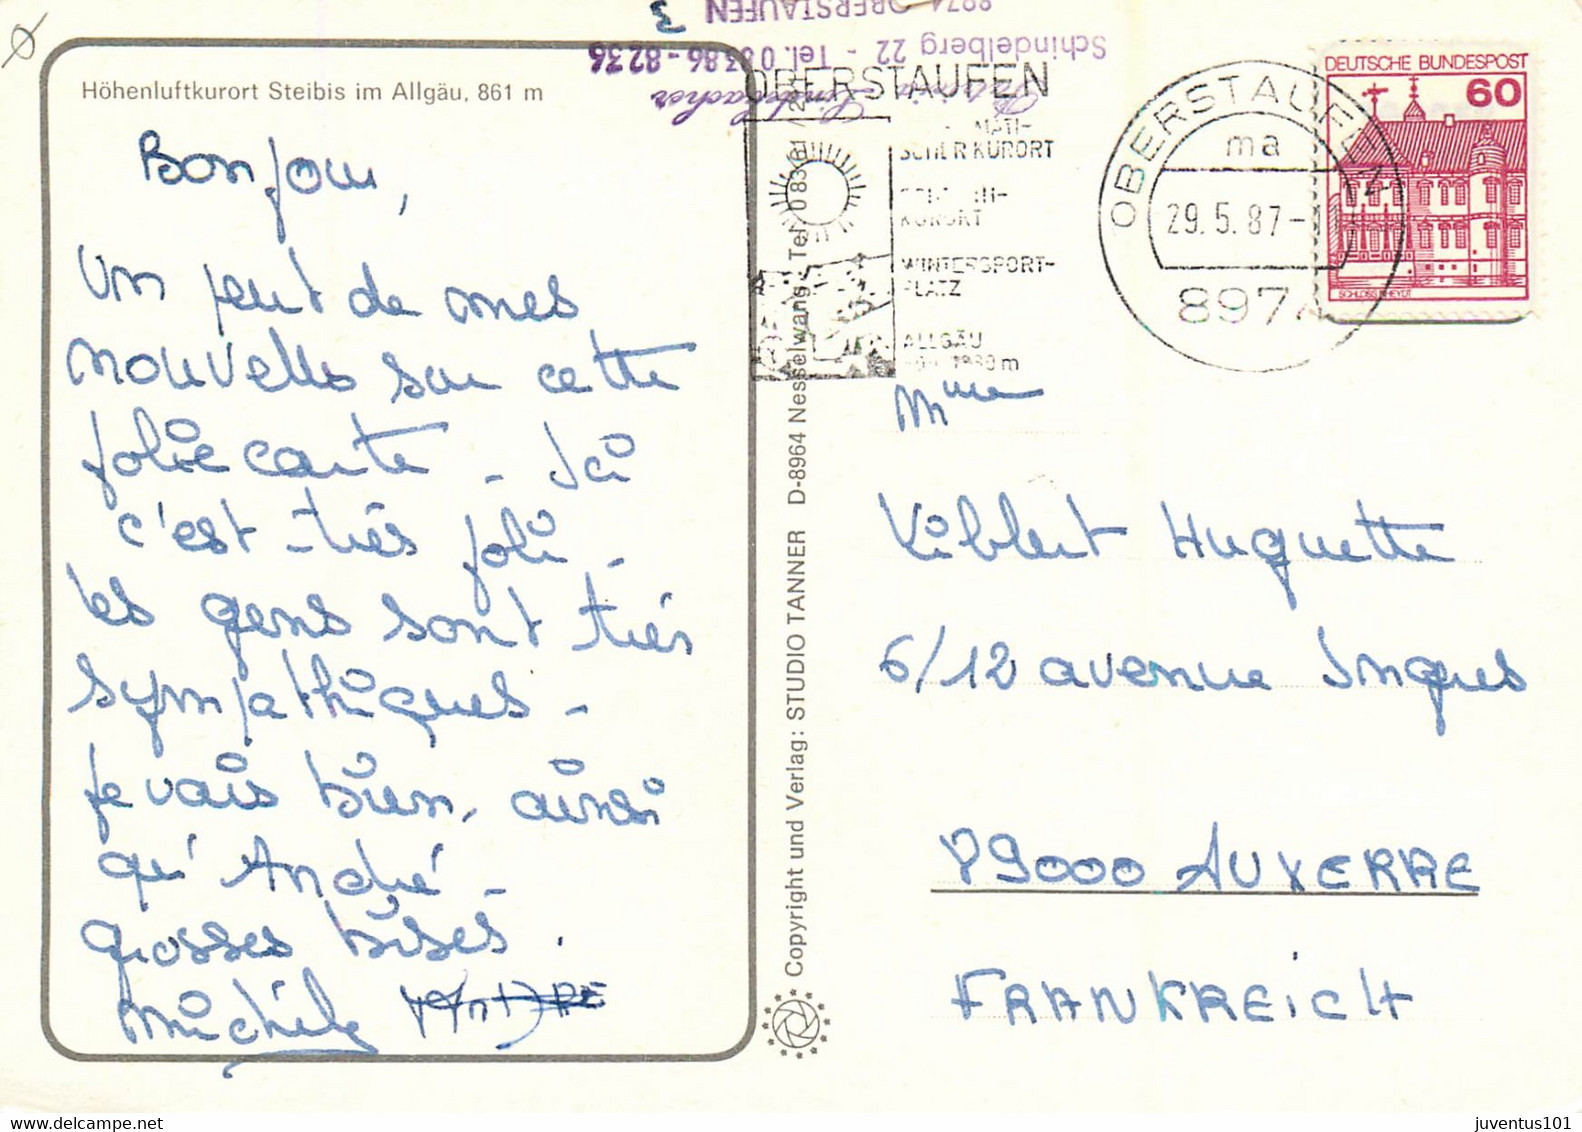 Höhenluftkurort Steibis im Allgäu, 861 m
Bonjour,
Un peut de mes
nouvelles sur cette
jolie carte - Ici
c'est très joli -
Les gens sont très
sympathiques -
je vais bien, ainsi
qu'André -
grosses bises.
Michèle ANDRE
3
8974 OBERSTAUFEN
Schindelberg 22 - Tel. 08386-8236
OBERSTAUFEN
SCHER KURORT
KURORT
WINTERSPORT-
PLATZ
ALLGÄU
OBERSTAUFEN
ma
29.5.87-11
897
DEUTSCHE BUNDESPOST
60
SCHLOSS RHEYDT
Copyright und Verlag: STUDIO TANNER D-8964 Nesselwang - Tel. 0 83 61 / 2
Mme
Huguette
6/12 avenue Ingres
89000 AUXERRE
FRANKREICH
juventus101